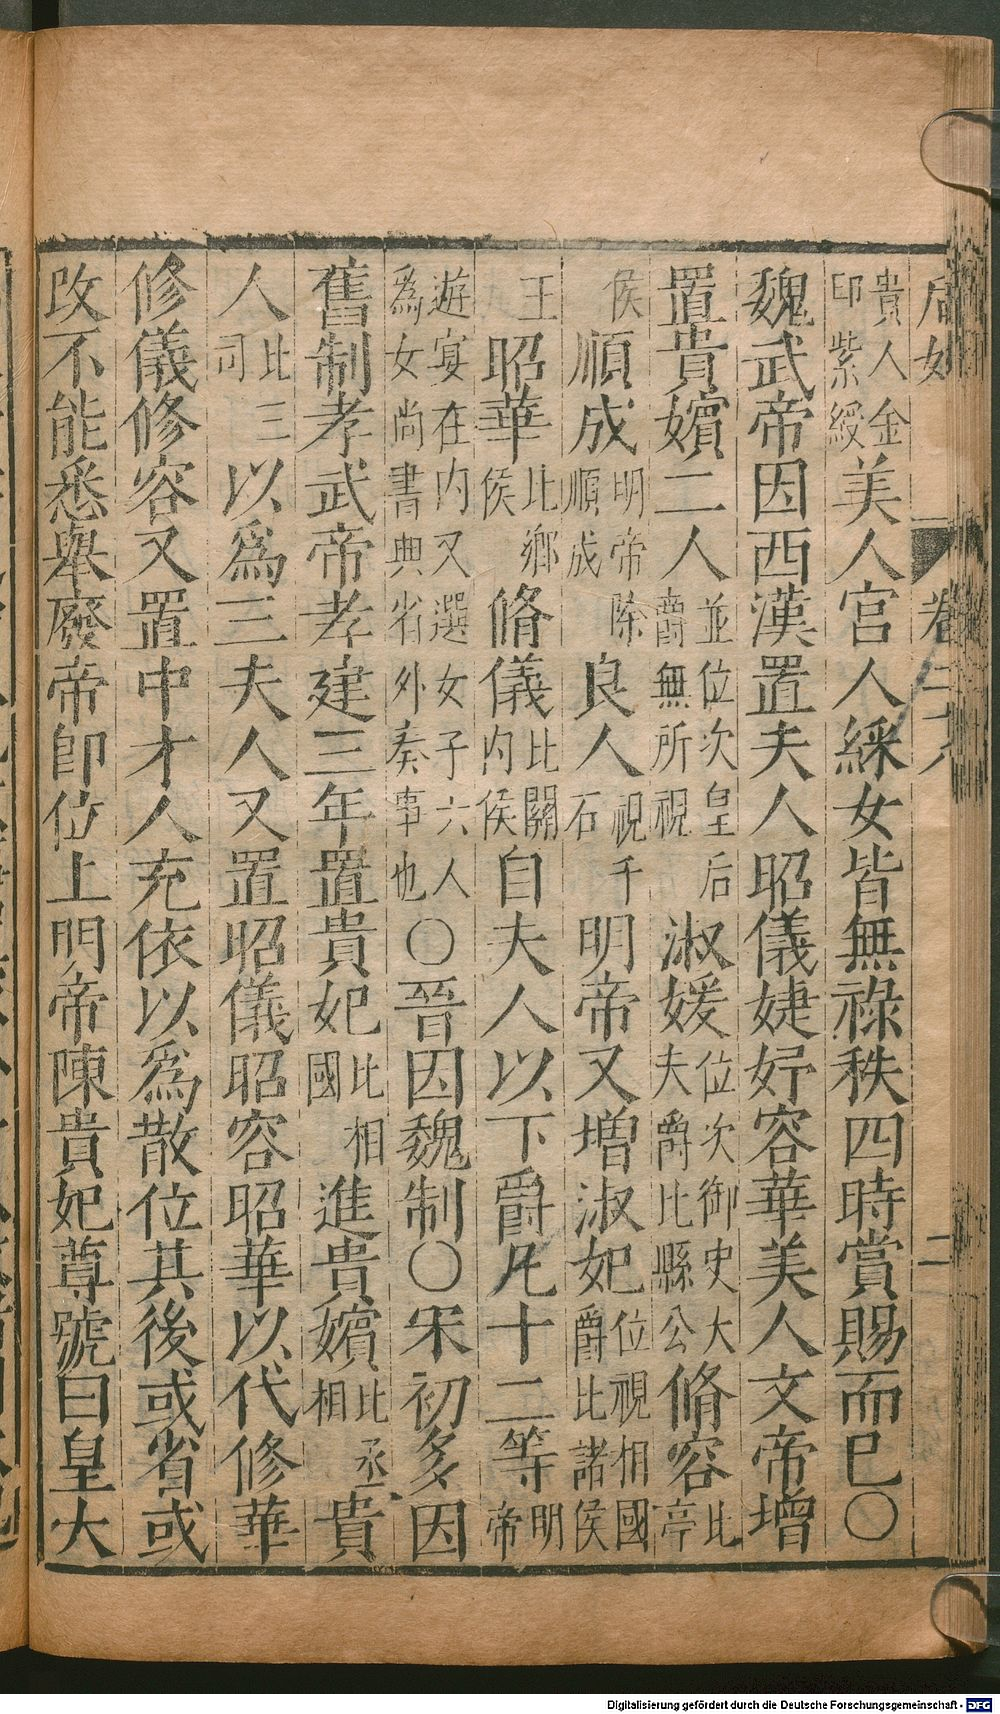 后妃 卷二 二
貴人金印紫綬美人宮人綵女皆無祿秩四時賞賜而已○
魏武帝因西漢置夫人昭儀婕妤容華美人文帝增
置貴嬪二人並位次皇后爵無所視淑媛位次御史大夫爵比縣公脩容比亭
侯順成明帝除順成良人視千石明帝又增淑妃位視相國爵比諸侯
王昭華比鄉侯脩儀比關內侯自夫人以下爵凡十二等明帝
遊宴在內又選女子六人為女尚書典省外奏事也○晉因魏制○宋初多因
舊制孝武帝孝建三年置貴妃比相國進貴嬪比丞相貴
人比三司以爲三夫人又置昭儀昭容昭華以代修華
修儀修容又置中才人充依以爲散位其後或省或
改不能悉舉廢帝即位上明帝陳貴妃尊號曰皇大
Digitalisierung gefördert durch die Deutsche Forschungsgemeinschaft - DFG